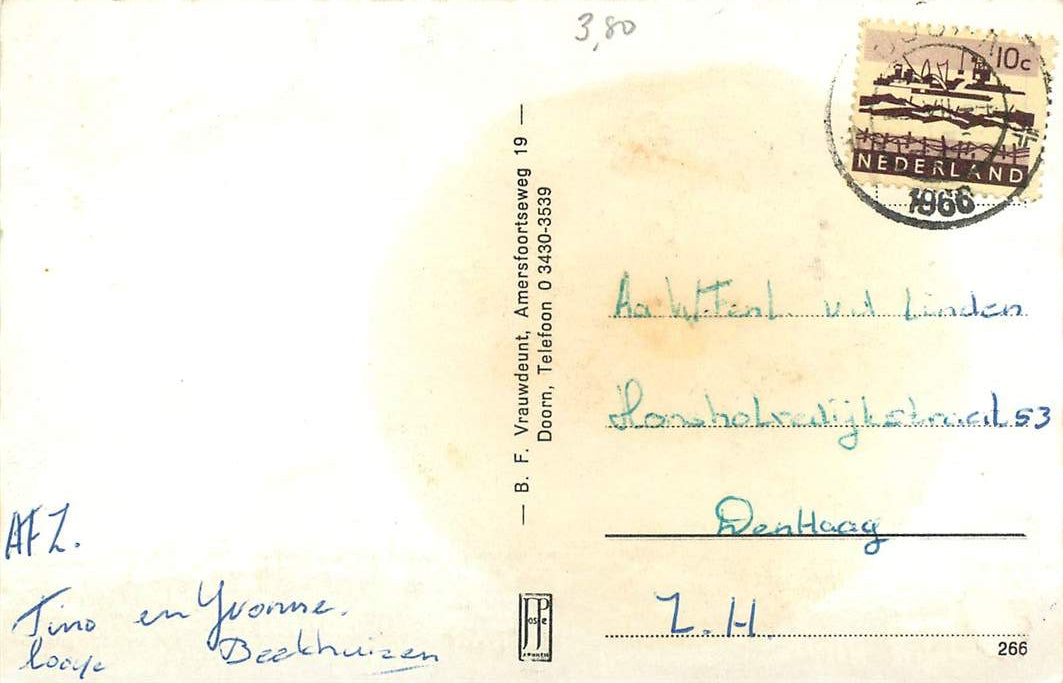 3,80
10c
NEDERLAND
1966
— B. F. Vrauwdeunt, Amersfoortseweg 19 —
Doorn, Telefoon 0 3430-3539
Aa W. Fen L. v.d Linden
Honsholredijkstraat 53
Den Haag
Z. H.
AFZ.
Tino en Yvonne.
Beekhuizen
JosPe
ARNHEM
266